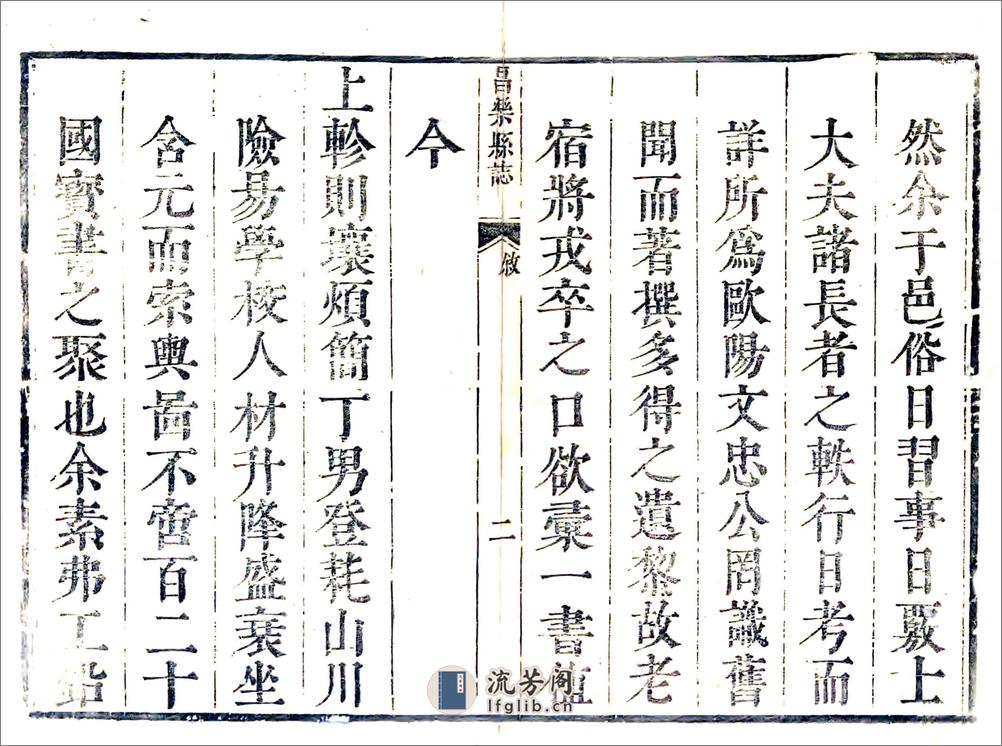 然余于邑俗日習事日覈上
大夫諸長者之軼行日考而
詳所爲歐陽文忠公罔識舊
聞而著撰多得之遺黎故老
宿將戎卒之口欲彙一書
昌樂縣誌
敘
二
今
上軫則壤煩簡丁男登耗山川
險易學校人材升降盛衰坐
含元而索輿啚不啻百二十
國寳書之聚也余素弗工鉛
流芳阁
lfglib.cn